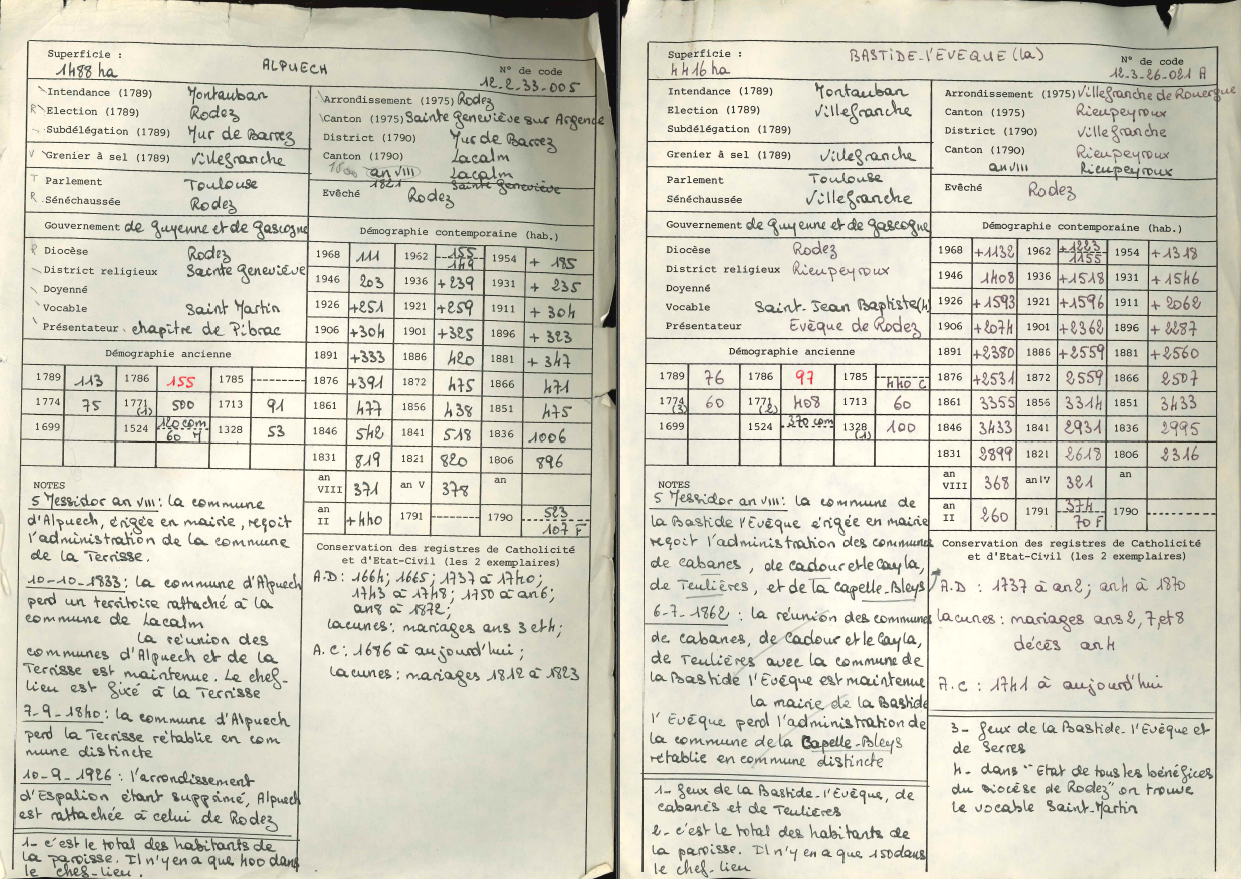 Superficie :
1488 ha
ALPUECH
N° de code
12.2.33.005
Intendance (1789) Montauban
Election (1789) Rodez
Subdélégation (1789) Mur de Barrez
Grenier à sel (1789) Villefranche
Parlement Toulouse
Sénéchaussée Rodez
Gouvernement de Guyenne et de Gascogne
Diocèse Rodez
District religieux Sainte Geneviève
Doyenné
Vocable Saint Martin
Présentateur chapitre de Pibrac
Démographie ancienne
1789 113 1786 155 1785 --------
1774 75 1771 (1) 500 1713 91
1699 1524 120 com 60 M 1328 53
NOTES
5 Messidor an VIII : la commune
d'Alpuech, érigée en mairie, reçoit
l'administration de la commune
de la Terrisse.
10-10-1833 : la commune d'Alpuech
perd un territoire rattaché à la
commune de Lacalm
la réunion des
communes d'Alpuech et de la
Terrisse est maintenue. Le chef-
lieu est fixé à la Terrisse
7-9-1840 : la commune d'Alpuech
perd la Terrisse rétablie en com
mune distincte
10-9-1926 : l'arrondissement
d'Espalion étant supprimé, Alpuech
est rattachée à celui de Rodez
1- c'est le total des habitants de
la paroisse. Il n'y en a que 400 dans
le chef-lieu.
Arrondissement (1975) Rodez
Canton (1975) Sainte Geneviève sur Argence
District (1790) Mur de Barrez
Canton (1790) Lacalm
an VIII Lacalm
1821 Sainte Geneviève
Evêché Rodez
Démographie contemporaine (hab.)
1968 111 1962 155 149 1954 + 185
1946 203 1936 +239 1931 + 235
1926 +251 1921 +259 1911 + 304
1906 +304 1901 +325 1896 + 323
1891 +333 1886 420 1881 + 347
1876 +391 1872 475 1866 471
1861 477 1856 438 1851 475
1846 542 1841 518 1836 1006
1831 819 1821 820 1806 896
an VIII 371 an V 378 an
an II +440 1791 -------- 1790 523 107 F
Conservation des registres de Catholicité
et d'Etat-Civil (les 2 exemplaires)
A.D : 1664; 1665; 1737 à 1740;
1743 à 1748; 1750 à an 6;
an 8 à 1872;
lacunes : mariages ans 3 et 4;
A.C : 1686 à aujourd'hui;
lacunes : mariages 1812 à 1823
Superficie :
4416 ha
BASTIDE-l'EVEQUE (la)
N° de code
12.3.26.021 A
Intendance (1789) Montauban
Election (1789) Villefranche
Subdélégation (1789)
Grenier à sel (1789) Villefranche
Parlement Toulouse
Sénéchaussée Villefranche
Gouvernement de Guyenne et de Gascogne
Diocèse Rodez
District religieux Rieupeyroux
Doyenné
Vocable Saint-Jean Baptiste (4)
Présentateur Evêque de Rodez
Démographie ancienne
1789 76 1786 97 1785 440 C
1774 (3) 60 1771 (2) 408 1713 60
1699 1524 370 com 1328 (1) 100
NOTES
5 Messidor an VIII : la commune de
la Bastide l'Evêque érigée en mairie
reçoit l'administration des communes
de cabanes, de cadour et le Cayla,
de Teulières, et de la Capelle-Bleys
6-7-1862 : la réunion des communes
de cabanes, de Cadour et le Cayla,
de Teulières avec la commune de
la Bastide l'Evêque est maintenue
la mairie de la Bastide
l'Evêque perd l'administration de
la commune de la Capelle-Bleys
rétablie en commune distincte
1- feux de la Bastide-l'Evêque, de
cabanes et de Teulières
2- c'est le total des habitants de
la paroisse. Il n'y en a que 150 dans
le chef-lieu
Arrondissement (1975) Villefranche de Rouergue
Canton (1975) Rieupeyroux
District (1790) Villefranche
Canton (1790) Rieupeyroux
an VIII Rieupeyroux
Evêché Rodez
Démographie contemporaine (hab.)
1968 +1132 1962 +1223 1155 1954 +1318
1946 1408 1936 +1518 1931 +1546
1926 +1593 1921 +1596 1911 + 2062
1906 +2074 1901 +2362 1896 +2287
1891 +2380 1886 +2559 1881 +2560
1876 +2531 1872 2559 1866 2507
1861 3355 1856 3314 1851 3433
1846 3433 1841 2931 1836 2995
1831 2899 1821 2618 1806 2316
an VIII 368 an IV 321 an
an II 260 1791 374 70 F 1790 --------
Conservation des registres de Catholicité
et d'Etat-Civil (les 2 exemplaires)
A.D : 1737 à an 2; an 4 à 1870
lacunes : mariages ans 2, 7, et 8
décès an 4
A.C : 1741 à aujourd'hui
3- feux de la Bastide-l'Evêque et
de Serres
4- dans "Etat de tous les bénéfices
du diocèse de Rodez" on trouve
le vocable Saint-Martin